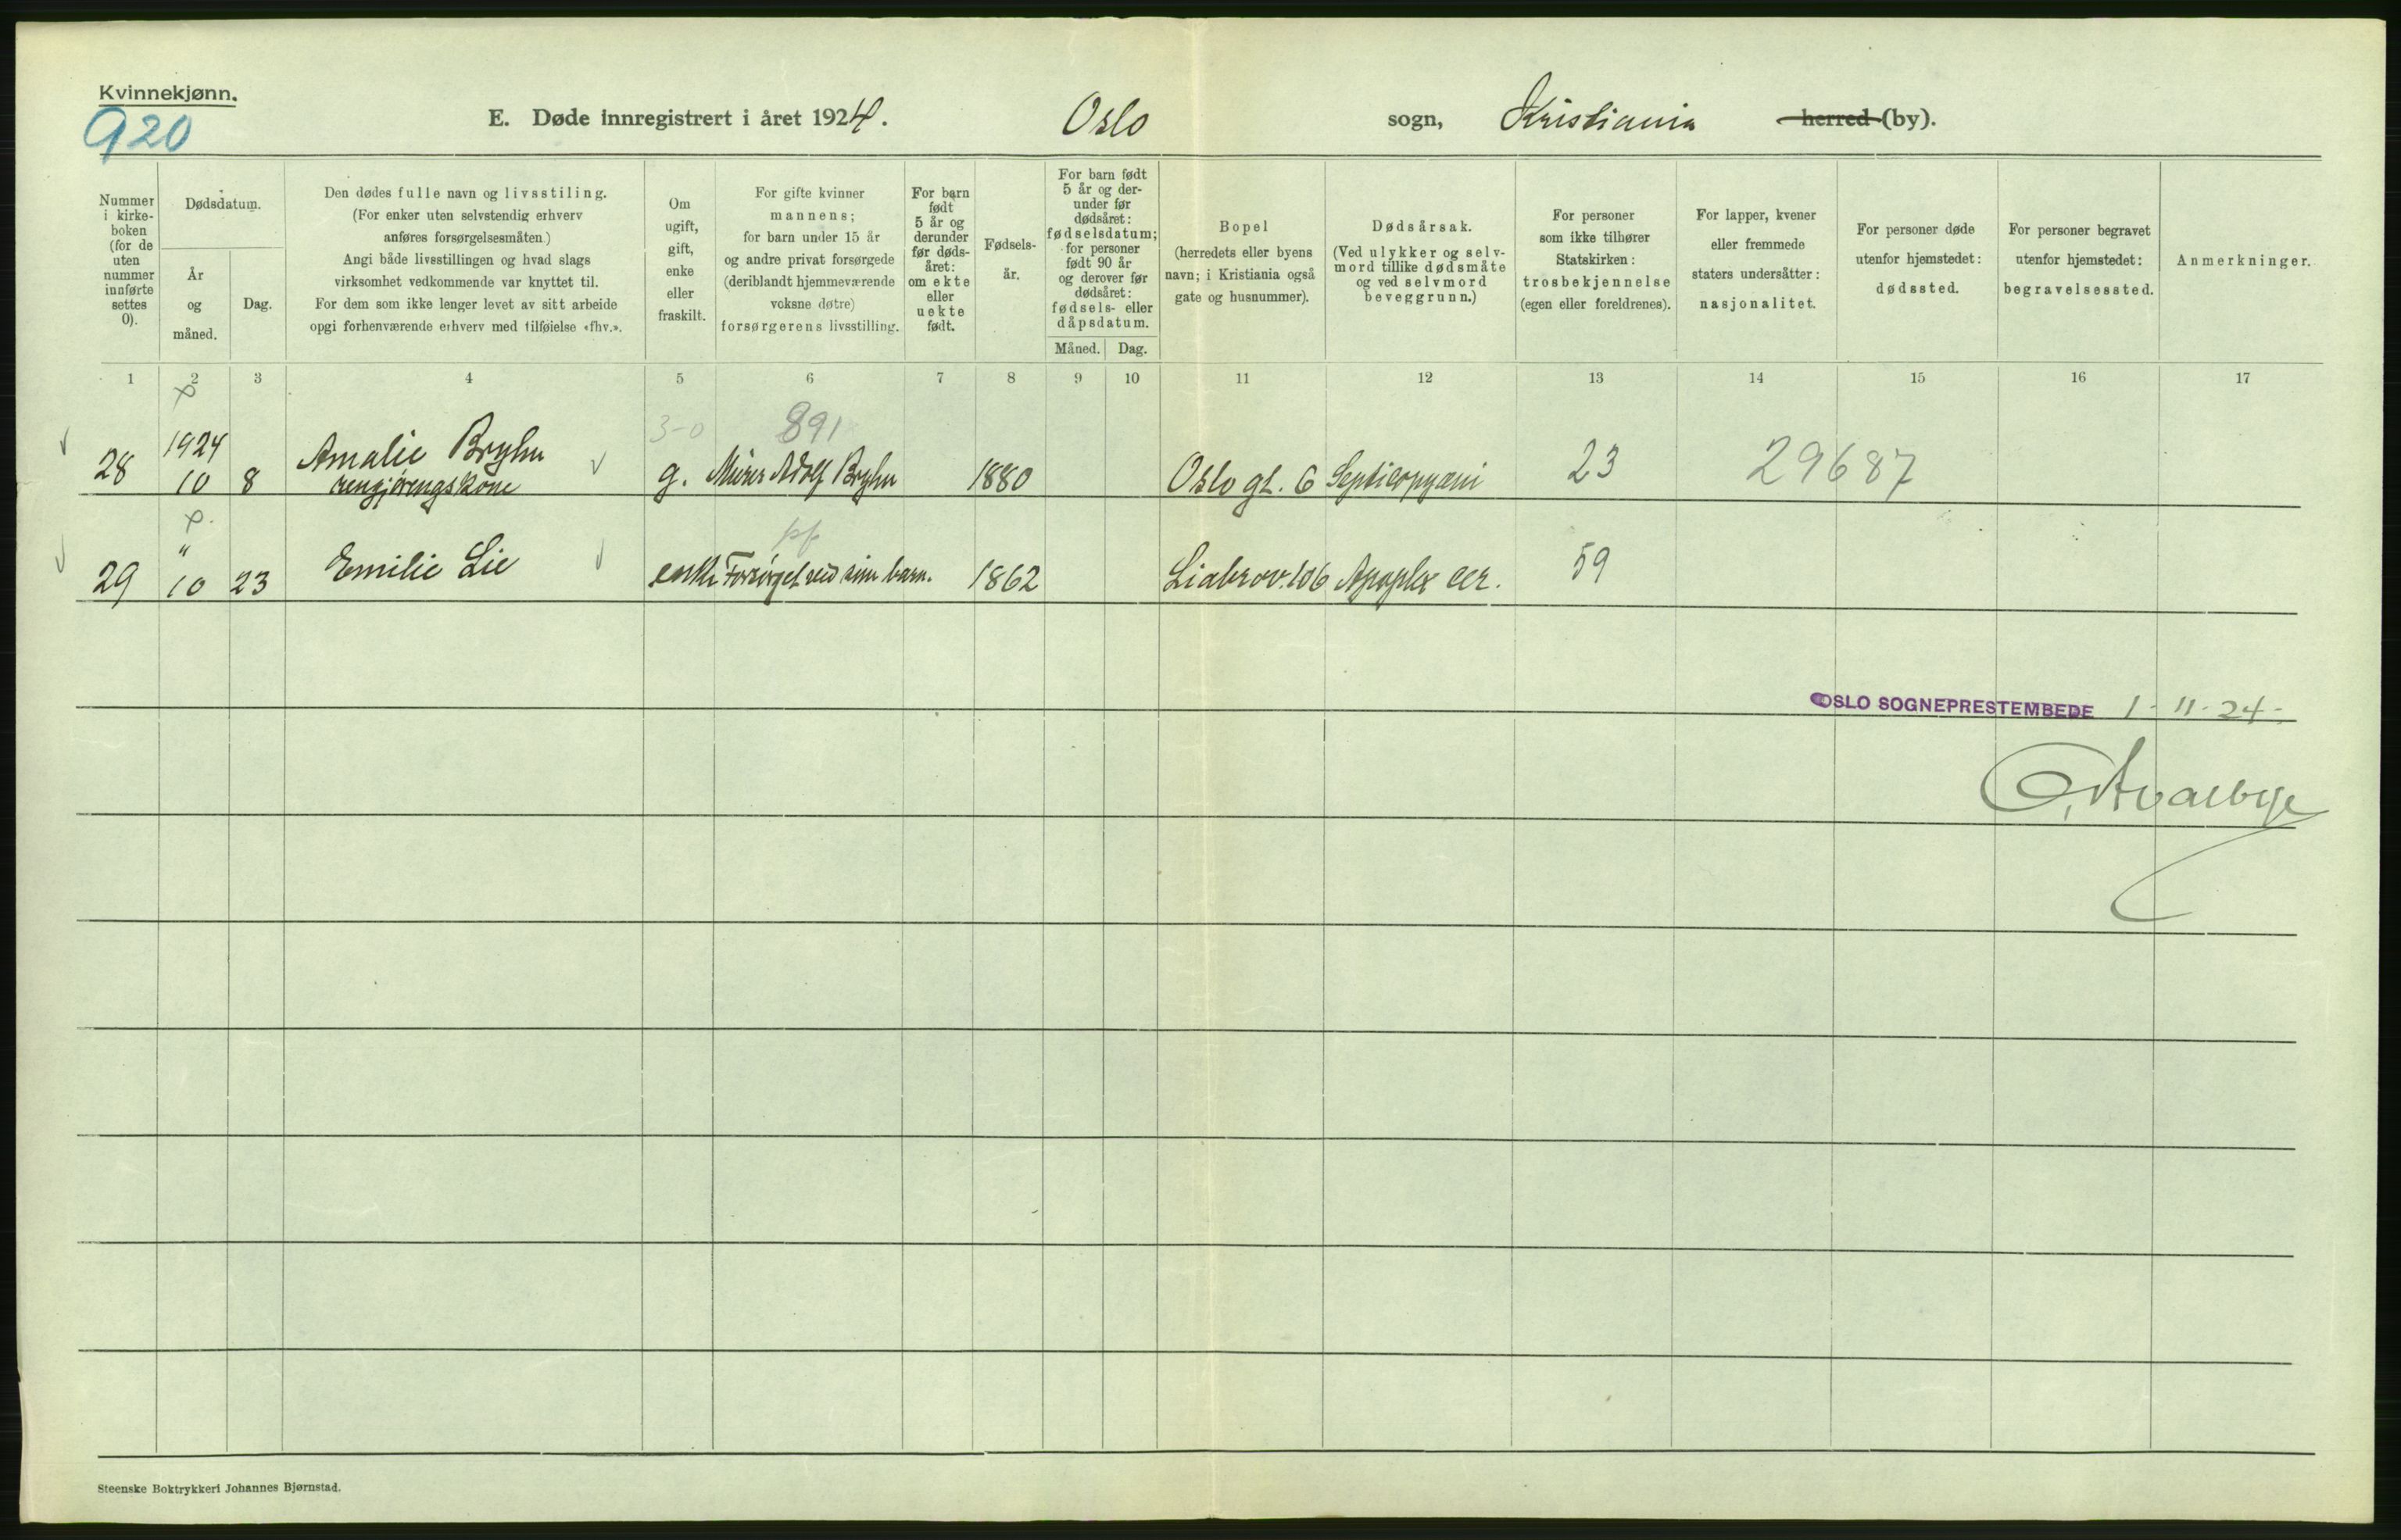 Kvinnekjønn.
920
E. Døde innregistrert i året 1924.
Oslo sogn, Kristiania herred (by).
Nummer i kirke- boken (for de uten nummer innførte settes 0).
Dødsdatum.
År og måned.
Dag.
Den dødes fulle navn og livsstiling.
(For enker uten selvstendig erhverv
anføres forsørgelsesmåten.)
Angi både livsstillingen og hvad slags
virksomhet vedkommende var knyttet til.
For dem som ikke lenger levet av sitt arbeide
opgi forhenværende erhverv med tilføielse «fhv.».
Om
ugift,
gift,
enke
eller
fraskilt.
For gifte kvinner
mannens;
for barn under 15 år
og andre privat forsørgede
(deriblandt hjemmeværende
voksne døtre)
forsørgerens livsstilling.
For barn
født
5 år og
derunder
før døds-
året:
om ekte
eller
uekte
født.
Fødsels-
år.
For barn født
5 år og der-
under før
dødsåret:
fødselsdatum;
for personer
født 90 år
og derover før
dødsåret:
fødsels- eller
dåpsdatum.
Måned. Dag.
Bopel
(herredets eller byens
navn; i Kristiania også
gate og husnummer).
Dødsårsak.
(Ved ulykker og selv-
mord tillike dødsmåte
og ved selvmord
beveggrunn.)
For personer
som ikke tilhører
Statskirken:
trosbekjennelse
(egen eller foreldrenes).
For lapper, kvener
eller fremmede
staters undersåtter:
nasjonalitet.
For personer døde
utenfor hjemstedet:
dødssted.
For personer begravet
utenfor hjemstedet:
begravelsessted.
Anmerkninger.
1 2 3 4 5 6 7 8 9 10 11 12 13 14 15 16 17
3-0 891
1924
28 10 8 Amalie Bryhn g. Murer Adolf Bryhn 1880 Oslo gt. 6 Septicopyæmi 23 29687
rengjørengskone
pf
"
29 10 23 Emilie Lie enke Forsørget ved sine barn. 1862 Liabrov. 106 Apoplex cer. 59
OSLO SOGNEPRESTEMBEDE 1-11-24-
Steenske Boktrykkeri Johannes Bjørnstad.